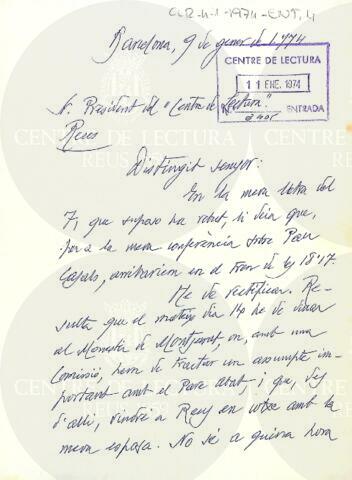 CLR-4-1-1974-ENT, 4
Barcelona, 9 de gener de 1.974
CENTRE DE LECTURA
11 ENE. 1974
ENTRADA
Sr. President del "Centre de Lectura".
Reus
Distingit senyor:
En la meva lletra del
7, que suposo ha rebut, li deia que,
per a la meva conferència sobre Pau
Casals, arribariem en el tren de les 18'17.
He de rectificar. Re-
sulta que el mateix dia 14 he de dinar
al Monestir de Montserrat, on, amb una
Comissió, hem de tractar un assumpte im-
portant amb el Pare abat i que, des
d'allí, vindré a Reus en cotxe amb la
meva esposa. No sé a quina hora
CENTRE DE LECTURA
REUS 1859